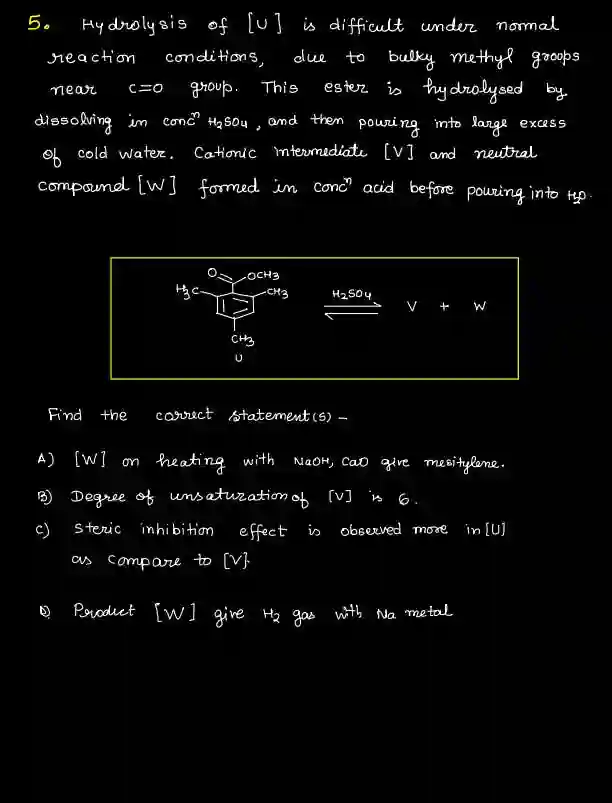 5. Hydrolysis of [U] is difficult under normal
reaction conditions, due to bulky methyl groops
near C=O group. This ester is hydrolysed by
dissolving in concⁿ H₂SO₄, and then pouring into large excess
of cold water. Cationic intermediate [V] and neutral
compound [W] formed in concⁿ acid before pouring into H₂O.
O OCH3
H3C CH3 H₂SO₄ V + W
CH3
U
Find the correct statement(s) –
A) [W] on heating with NaOH, CaO give mesitylene.
B) Degree of unsaturation of [V] is 6.
C) Steric inhibition effect is observed more in [U]
as compare to [V].
D) Product [W] give H₂ gas with Na metal